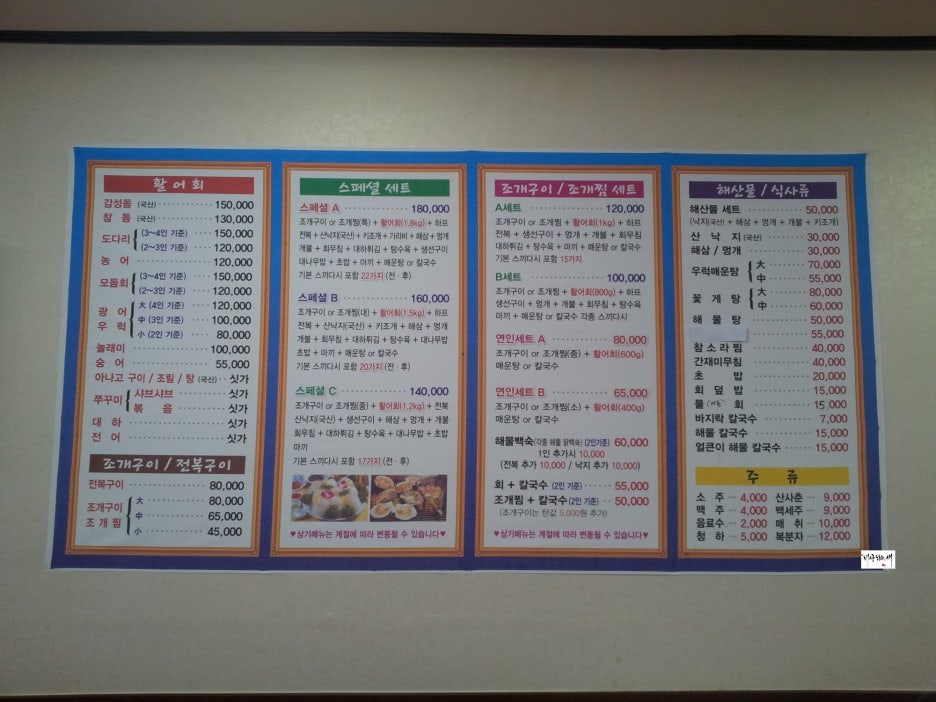 활어회
감성돔 (국산) 150,000
참돔 (국산) 130,000
도다리 (3~4인 기준) 150,000
(2~3인 기준) 120,000
농어 120,000
모듬회 (3~4인 기준) 150,000
(2~3인 기준) 120,000
광어 우럭 大 (4인 기준) 120,000
中 (3인 기준) 100,000
小 (2인 기준) 80,000
놀래미 100,000
숭어 55,000
아나고 구이 / 조림 / 탕 (국산) 싯가
쭈꾸미 샤브샤브 싯가
볶음 싯가
대하 싯가
전어 싯가
조개구이 / 전복구이
전복구이 80,000
조개구이 조개찜 大 80,000
中 65,000
小 45,000
스페셜 세트
스페셜 A 180,000
조개구이 or 조개찜(특) + 활어회(1,8kg) + 하프
전복 + 산낙지(국산) + 키조개 + 가리비 + 해삼 + 멍게
개불 + 회무침 + 대하튀김 + 탕수육 + 생선구이
대나무밥 + 초밥 + 마끼 + 매운탕 or 칼국수
기본 스끼다시 포함 22가지 (전·후)
스페셜 B 160,000
조개구이 or 조개찜(대) + 활어회(1,5kg) + 하프
전복 + 산낙지(국산) + 키조개 + 해삼 + 멍게
개불 + 회무침 + 대하튀김 + 탕수육 + 대나무밥
초밥 + 마끼 + 매운탕 or 칼국수
기본 스끼다시 포함 20가지 (전·후)
스페셜 C 140,000
조개구이 or 조개찜(중) + 활어회(1,2kg) + 전복
산낙지(국산) + 생선구이 + 해삼 + 멍게 + 개불
회무침 + 대하튀김 + 탕수육 + 대나무밥 + 초밥
마끼
기본 스끼다시 포함 17가지 (전·후)
♥상기메뉴는 계절에 따라 변동될 수 있습니다♥
조개구이 / 조개찜 세트
A세트 120,000
조개구이 or 조개찜 + 활어회(1kg) + 하프
전복 + 생선구이 + 멍게 + 개불 + 회무침
대하튀김 + 탕수육 + 마끼 + 매운탕 or 칼국수
기본 스끼다시 포함 15가지
B세트 100,000
조개구이 or 조개찜 + 활어회(800g) + 하프
생선구이 + 멍게 + 개불 + 회무침 + 탕수육
마끼 + 매운탕 or 칼국수 각종 스끼다시
연인세트 A 80,000
조개구이 or 조개찜(중) + 활어회(600g)
매운탕 or 칼국수
연인세트 B 65,000
조개구이 or 조개찜(소) + 활어회(400g)
매운탕 or 칼국수
해물백숙(각종 해물 닭백숙) (2인기준) 60,000
1인 추가시 10,000
(전복 추가 10,000 / 낙지 추가 10,000)
회 + 칼국수 (2인 기준) 55,000
조개찜 + 칼국수 (2인 기준) 50,000
(조개구이는 탄값 5,000원 추가)
♥상기메뉴는 계절에 따라 변동될 수 있습니다♥
해산물 / 식사류
해산물 세트 50,000
(낙지(국산) + 해삼 + 멍게 + 개불 + 키조개)
산낙지 (국산) 30,000
해삼 / 멍게 30,000
우럭매운탕 大 70,000
中 55,000
꽃게탕 大 80,000
中 60,000
해물탕 50,000
55,000
참소라찜 40,000
간재미무침 40,000
초밥 20,000
회덮밥 15,000
물회 15,000
바지락 칼국수 7,000
해물 칼국수 15,000
얼큰이 해물 칼국수 15,000
주류
소주 4,000 산사춘 9,000
맥주 4,000 백세주 9,000
음료수 2,000 매취 10,000
청하 5,000 복분자 12,000